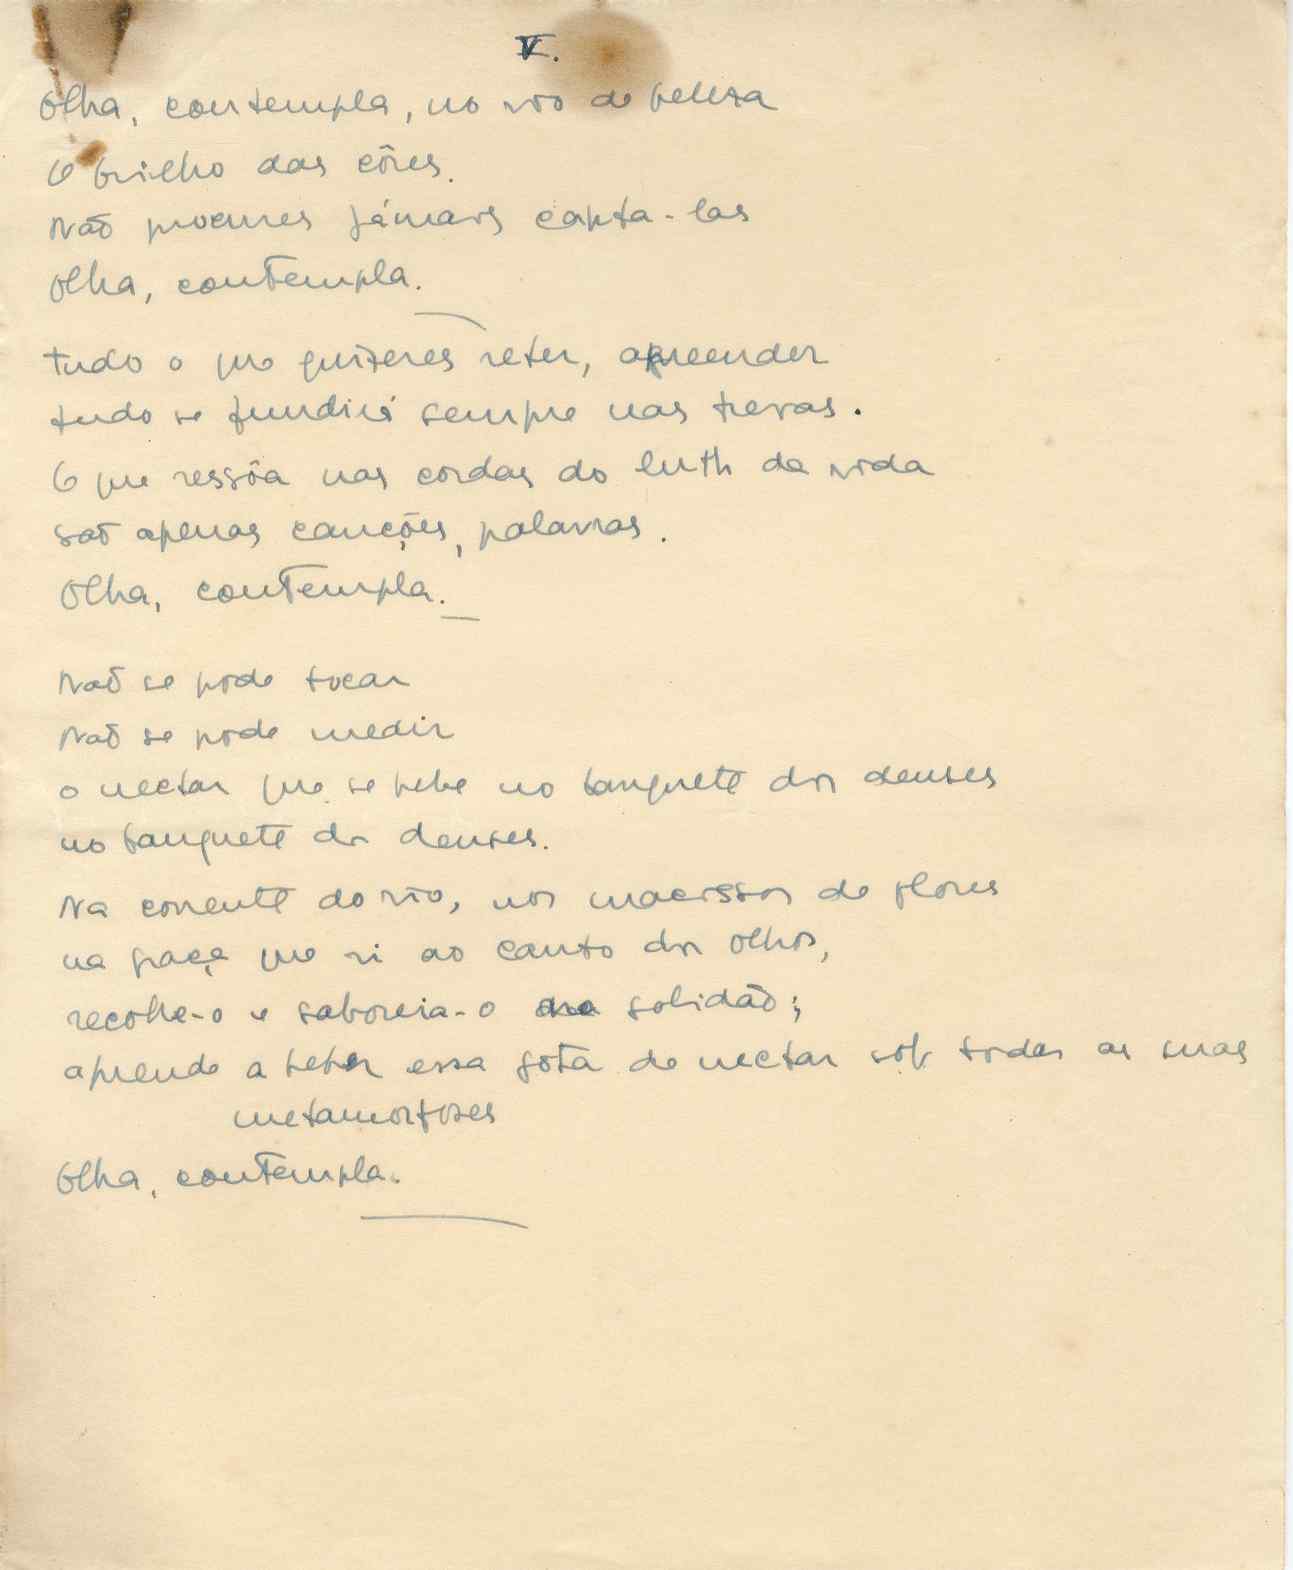 V.
Olha, contempla, no rio de beleza
O brilho das côres.
Não procures jámais capta-las
Olha, contempla.
tudo o que quizeres reter, apreender
tudo se fundirá sempre nas trevas.
O que ressôa nas cordas do luth da vida
saõ apenas canções, palavras.
Olha, contempla.
Naõ se pode tocar
Naõ se pode medir
o nectar que se bebe no banquete dos deuses
no banquete dos deuses.
Na corrente do rio, nos macissos de flores
na graça que ri ao canto dos olhos,
recolhe-o e saboreia-o na solidão;
aprende a beber essa gota de nectar sob todas as suas
metamorfoses
Olha, contempla.